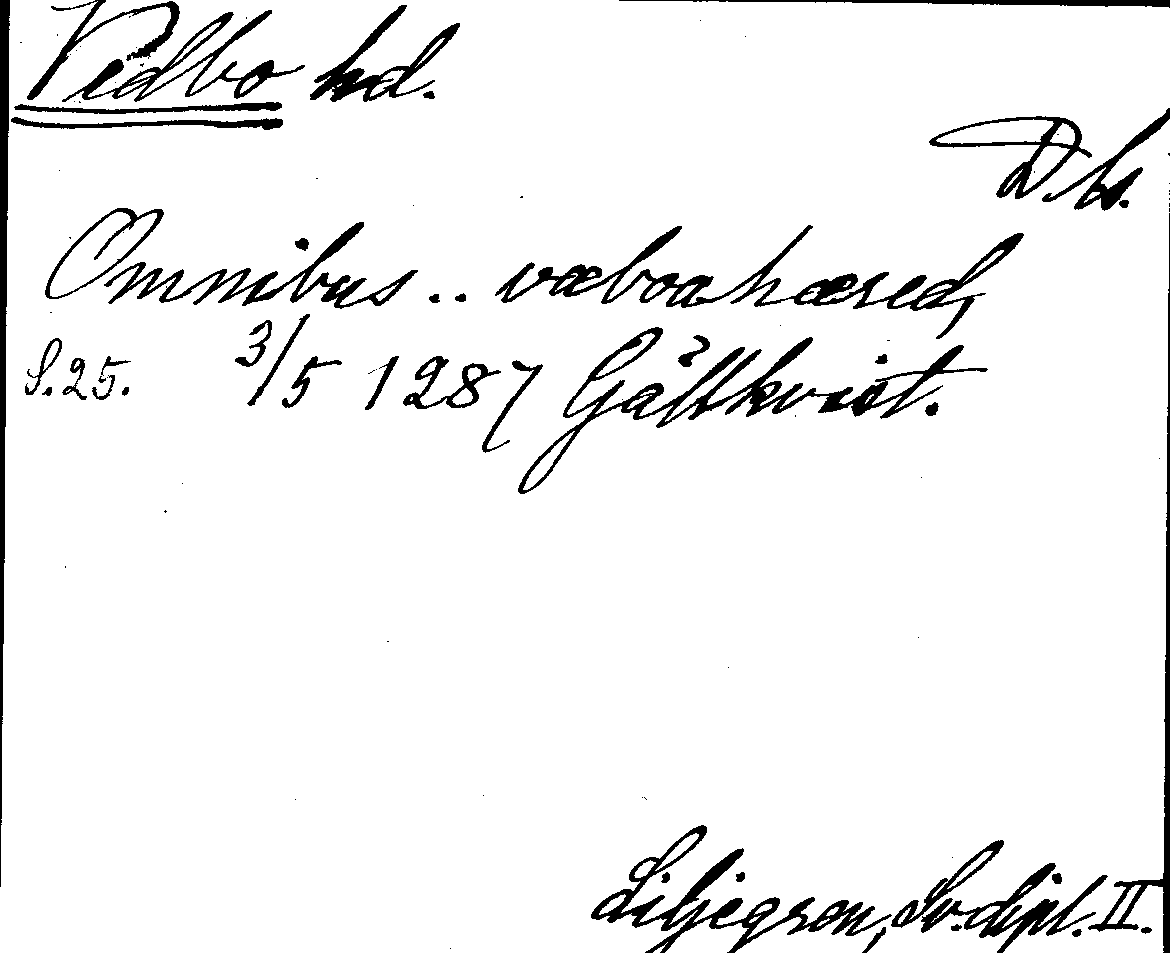 Vedbo hd.
D. ls.
Omnibus .. væboahæred,
S. 25. 3/5 1287 Gältkvist.
Liljegren, Sv. dipl. II.